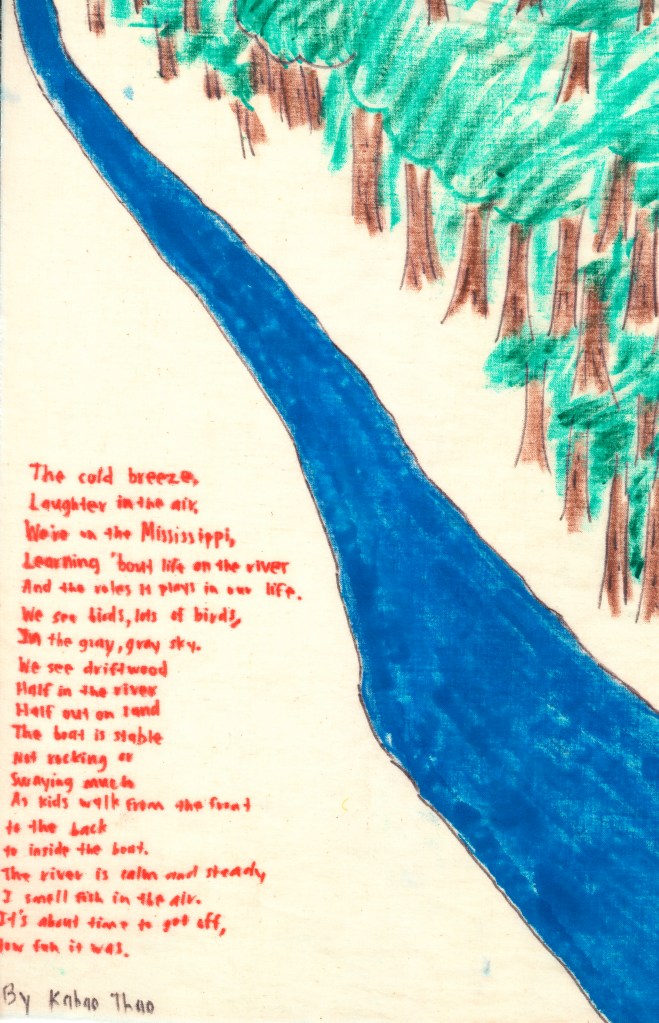 The cold breeze,
Laughter in the air,
We're on the Mississippi,
Learning 'bout life on the river
And the roles it plays in our life.
We see birds, lots of birds,
In the gray, gray sky.
We see driftwood
Half in the river
Half out on sand
The boat is stable
Not rocking or
Swaying much
As kids walk from the front
to the back
to inside the boat.
The river is calm and steady,
I smell fish in the air.
It's about time to get off,
How fun it was.
By Kabao Thao